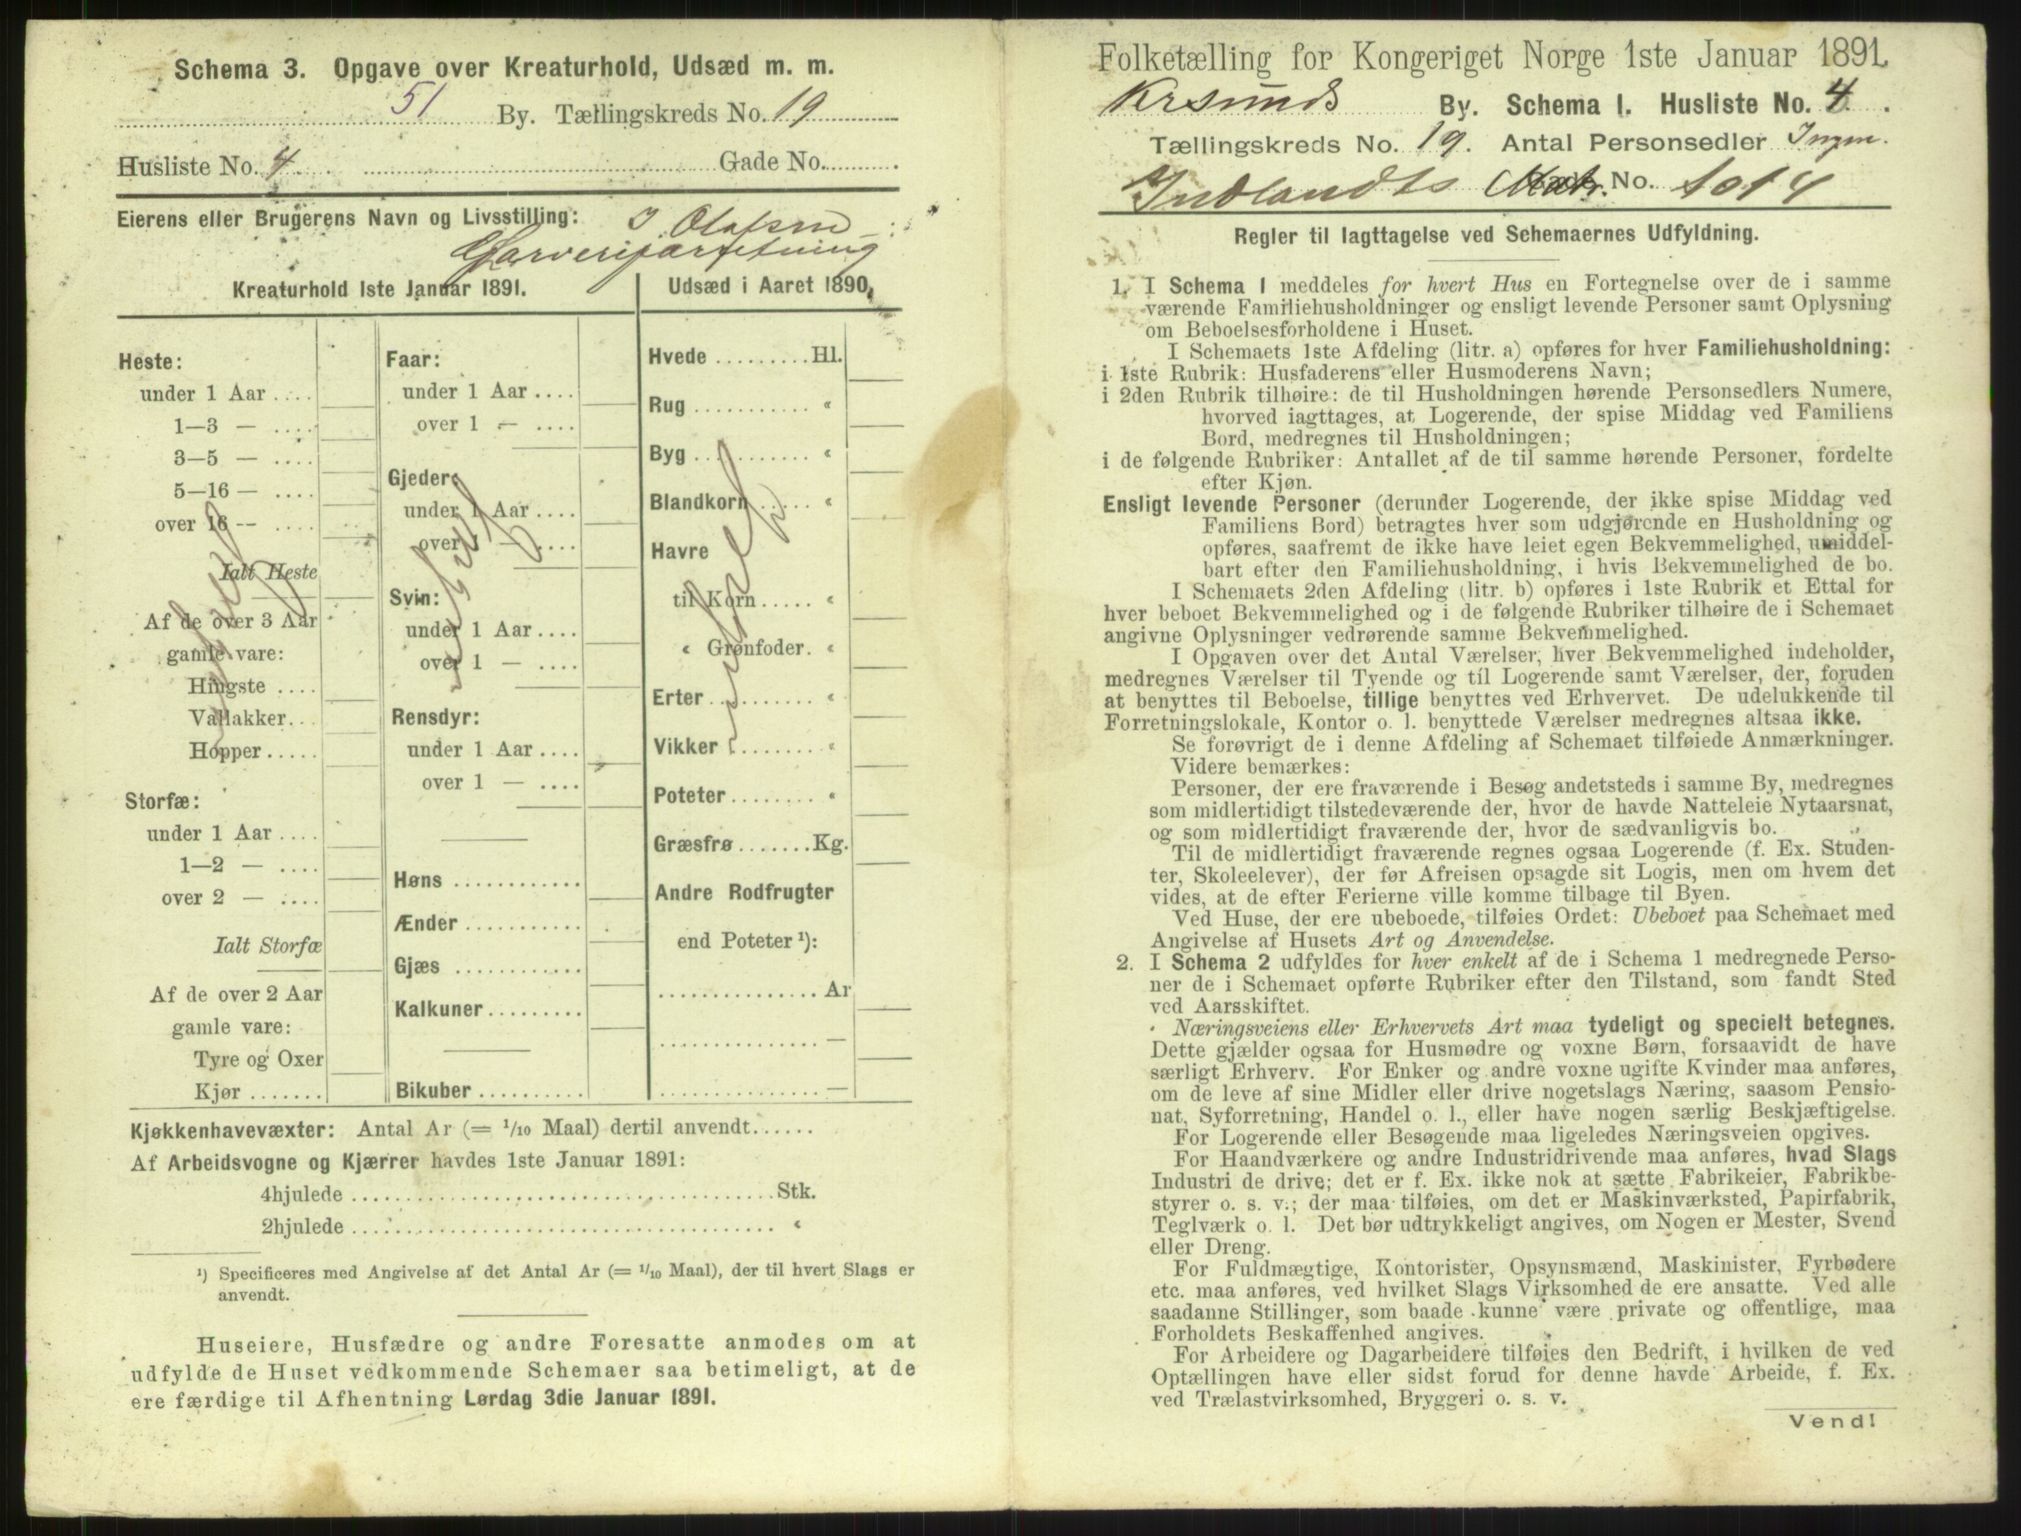 Schema 3. Opgave over Kreaturhold, Udsæd m. m.
51 By. Tællingskreds No. 19
Husliste No. 4 Gade No.
Eierens eller Brugerens Navn og Livsstilling: J. Olafsen
Garveriforretning
Kreaturhold 1ste Januar 1891.
Heste:
under 1 Aar
1—3 —
3—5 —
5—16 —
over 16 —
Ialt Heste
Af de over 3 Aar
gamle vare:
Hingste
Vallakker
Hopper
Storfæ:
under 1 Aar
1—2 —
over 2 —
Ialt Storfæ
Af de over 2 Aar
gamle vare:
Tyre og Oxer
Kjør
Faar:
under 1 Aar
over 1 —
Gjeder:
under 1 Aar
over 1 —
Svin:
under 1 Aar
over 1 —
Rensdyr:
under 1 Aar
over 1 —
Høns
Ænder
Gjæs
Kalkuner
Bikuber
Udsæd i Aaret 1890.
Hvede Hl.
Rug "
Byg "
Blandkorn "
Havre
til Korn "
" Grønfoder "
Erter "
Vikker "
Poteter "
Græsfrø Kg.
Andre Rodfrugter
end Poteter ¹):
Ar
—
—
Kjøkkenhavevæxter: Antal Ar (= 1/10 Maal) dertil anvendt
Af Arbeidsvogne og Kjærrer havdes 1ste Januar 1891:
4hjulede Stk.
2hjulede "
¹) Specificeres med Angivelse af det Antal Ar (= 1/10 Maal), der til hvert Slags er
anvendt.
Huseiere, Husfædre og andre Foresatte anmodes om at
udfylde de Huset vedkommende Schemaer saa betimeligt, at de
ere færdige til Afhentning Lørdag 3die Januar 1891.
Folketælling for Kongeriget Norge 1ste Januar 1891.
Krsunds By. Schema 1. Husliste No. 4.
Tællingskreds No. 19. Antal Personsedler Ingen.
Indlandets Matr. No. 1014
Regler til Iagttagelse ved Schemaernes Udfyldning.
1. I Schema 1 meddeles for hvert Hus en Fortegnelse over de i samme
værende Familiehusholdninger og ensligt levende Personer samt Oplysning
om Beboelsesforholdene i Huset.
I Schemaets 1ste Afdeling (litr. a) opføres for hver Familiehusholdning:
i 1ste Rubrik: Husfaderens eller Husmoderens Navn;
i 2den Rubrik tilhøire: de til Husholdningen hørende Personsedlers Numere,
hvorved iagttages, at Logerende, der spise Middag ved Familiens
Bord, medregnes til Husholdningen;
i de følgende Rubriker: Antallet af de til samme hørende Personer, fordelte
efter Kjøn.
Ensligt levende Personer (derunder Logerende, der ikke spise Middag ved
Familiens Bord) betragtes hver som udgjørende en Husholdning og
opføres, saafremt de ikke have leiet egen Bekvemmelighed, umiddel-
bart efter den Familiehusholdning, i hvis Bekvemmelighed de bo.
I Schemaets 2den Afdeling (litr. b) opføres i 1ste Rubrik et Ettal for
hver beboet Bekvemmelighed og i de følgende Rubriker tilhøire de i Schemaet
angivne Oplysninger vedrørende samme Bekvemmelighed.
I Opgaven over det Antal Værelser, hver Bekvemmelighed indeholder,
medregnes Værelser til Tyende og til Logerende samt Værelser, der, foruden
at benyttes til Beboelse, tillige benyttes ved Erhvervet. De udelukkende til
Forretningslokale, Kontor o. l. benyttede Værelser medregnes altsaa ikke.
Se forøvrigt de i denne Afdeling af Schemaet tilføiede Anmærkninger.
Videre bemærkes:
Personer, der ere fraværende i Besøg andetsteds i samme By, medregnes
som midlertidigt tilstedeværende der, hvor de havde Natteleie Nytaarsnat,
og som midlertidigt fraværende der, hvor de sædvanligvis bo.
Til de midlertidigt fraværende regnes ogsaa Logerende (f. Ex. Studen-
ter, Skoleelever), der før Afreisen opsagde sit Logis, men om hvem det
vides, at de efter Ferierne ville komme tilbage til Byen.
Ved Huse, der ere ubeboede, tilføies Ordet: Ubeboet paa Schemaet med
Angivelse af Husets Art og Anvendelse.
2. I Schema 2 udfyldes for hver enkelt af de i Schema 1 medregnede Perso-
ner de i Schemaet opførte Rubriker efter den Tilstand, som fandt Sted
ved Aarsskiftet.
Næringsveiens eller Erhvervets Art maa tydeligt og specielt betegnes.
Dette gjælder ogsaa for Husmødre og voxne Børn, forsaavidt de have
særligt Erhverv. For Enker og andre voxne ugifte Kvinder maa anføres,
om de leve af sine Midler eller drive nogetslags Næring, saasom Pensio-
nat, Syforretning, Handel o. l., eller have nogen særlig Beskjæftigelse.
For Logerende eller Besøgende maa ligeledes Næringsveien opgives.
For Haandværkere og andre Industridrivende maa anføres, hvad Slags
Industri de drive; det er f. Ex. ikke nok at sætte Fabrikeier, Fabrikbe-
styrer o. s. v.; der maa tilføies, om det er Maskinværksted, Papirfabrik,
Teglværk o. l. Det bør udtrykkeligt angives, om Nogen er Mester, Svend
eller Dreng.
For Fuldmægtige, Kontorister, Opsynsmænd, Maskinister, Fyrbødere
etc. maa anføres, ved hvilket Slags Virksomhed de ere ansatte. Ved alle
saadanne Stillinger, som baade kunne være private og offentlige, maa
Forholdets Beskaffenhed angives.
For Arbeidere og Dagarbeidere tilføies den Bedrift, i hvilken de ved
Optællingen have eller sidst forud for denne havde Arbeide, f. Ex.
ved Trælastvirksomhed, Bryggeri o. s. v.
Vend!